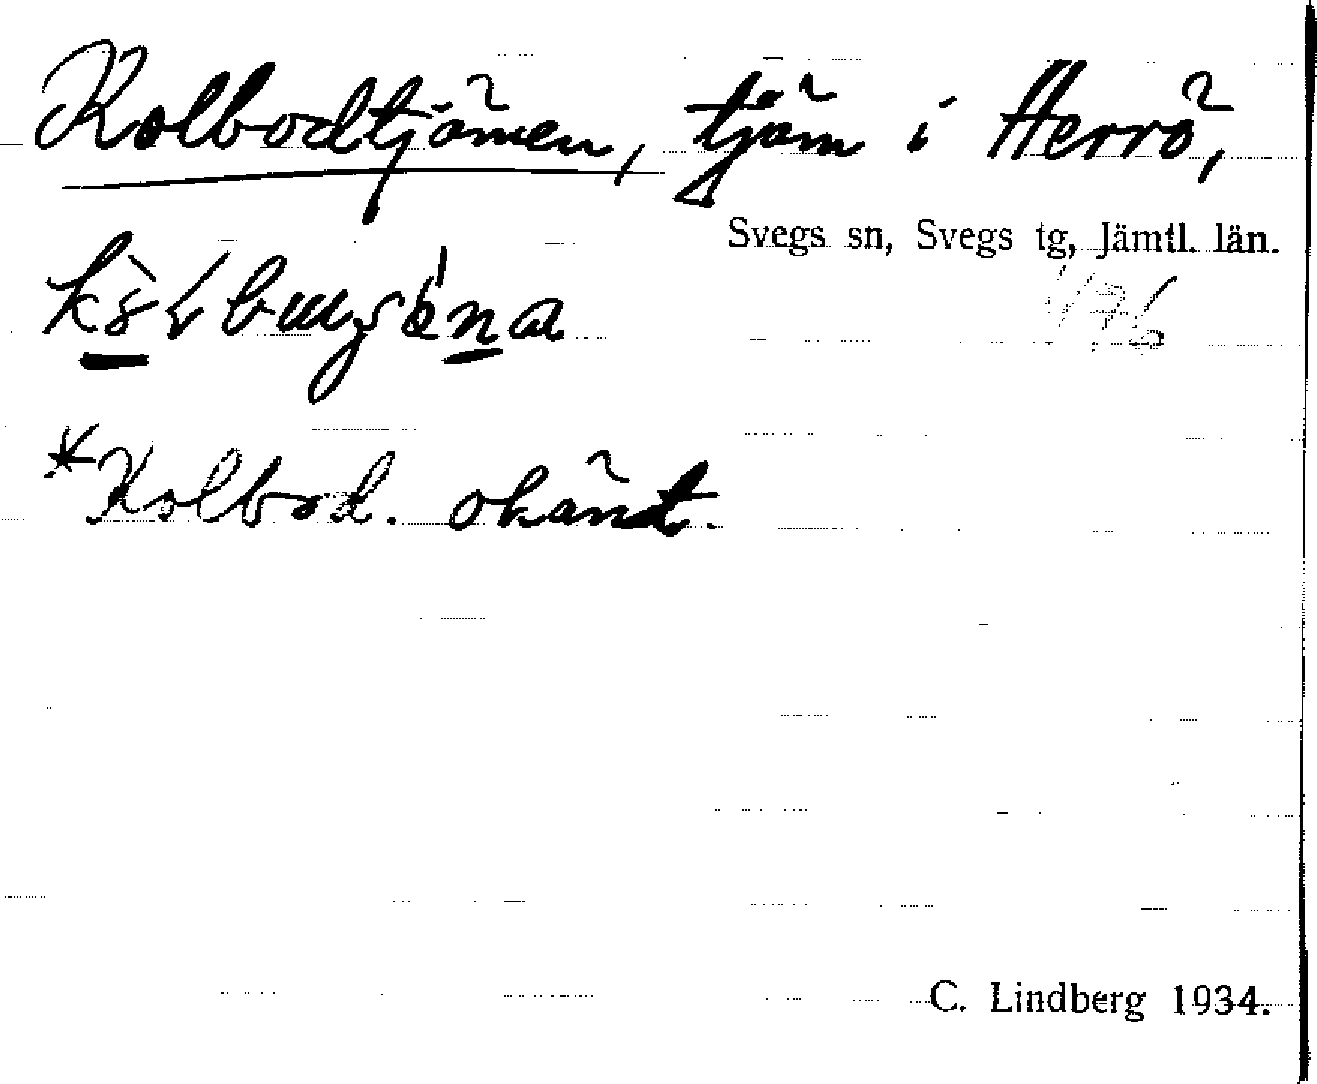 Kolbodtjärnen, tjärn i Herrö,
Svegs sn, Svegs tg, Jämtl. län.
*Kolbod. okänt.
C. Lindberg 1934.